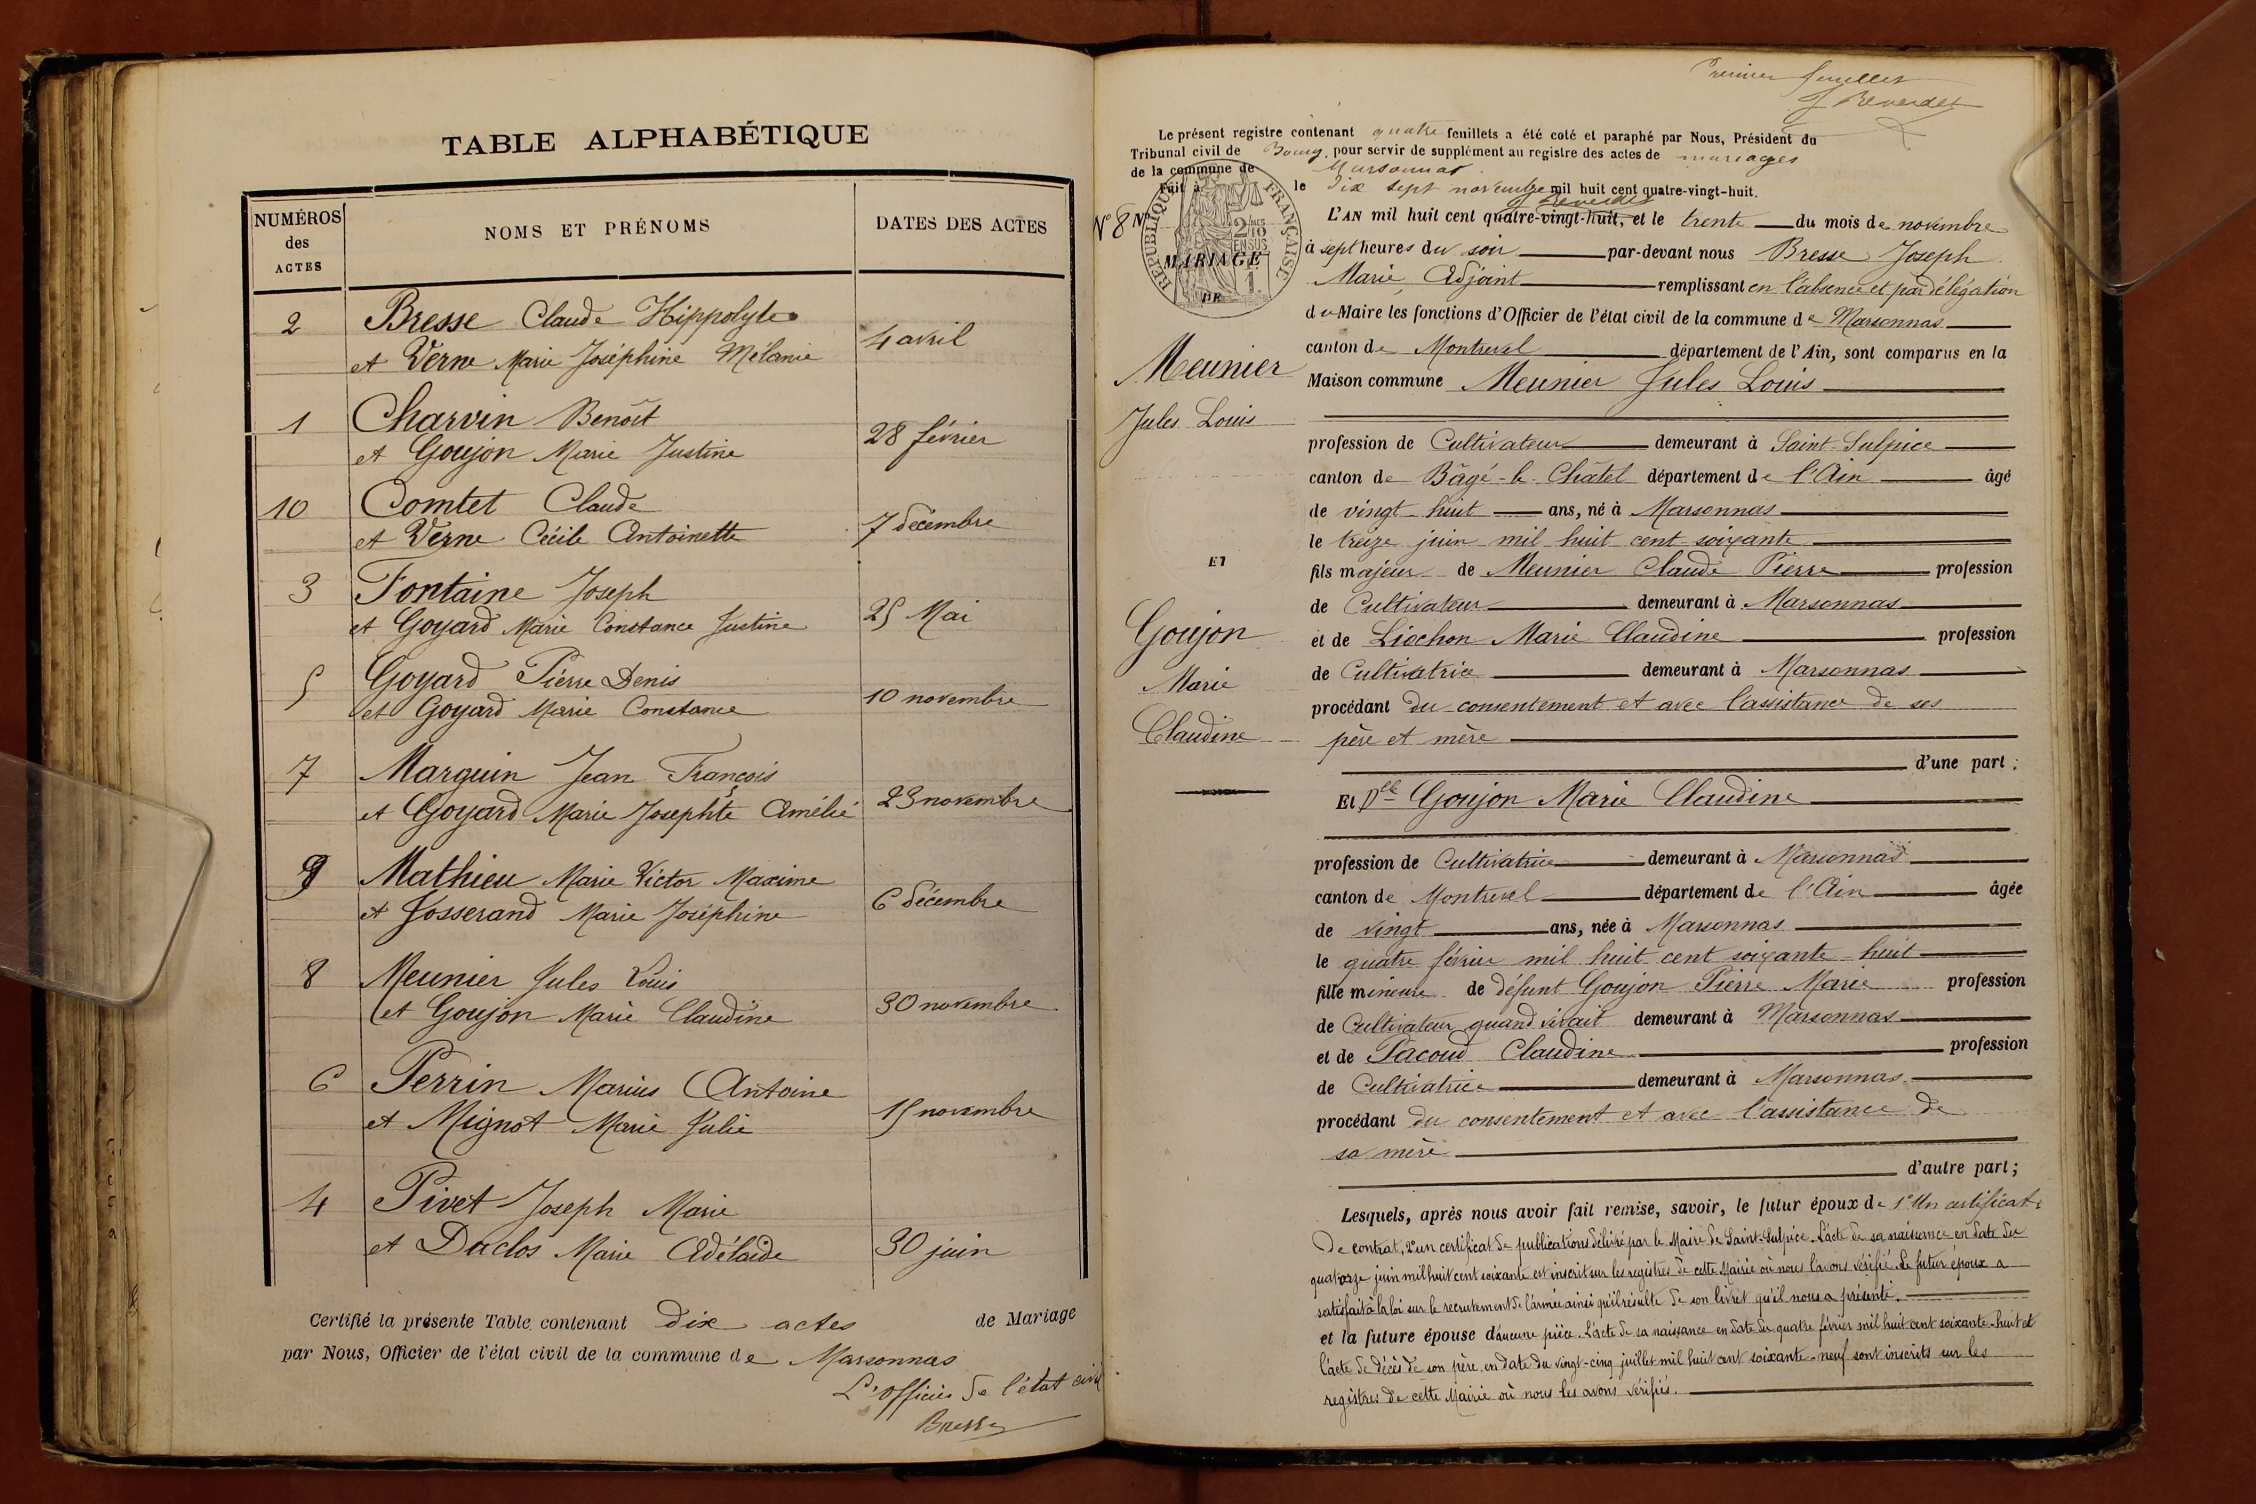 TABLE ALPHABÉTIQUE
NUMÉROS des ACTES
NOMS ET PRÉNOMS
DATES DES ACTES
2 Bresse Claude Hippolyte
et Verne Marie Joséphine Mélanie 4 avril
1 Charvin Benoît
et Goujon Marie Justine 28 février
10 Comtet Claude
et Verne Cécile Antoinette 7 décembre
3 Fontaine Joseph
et Goyard Marie Constance Justine 25 Mai
5 Goyard Pierre Denis
et Goyard Marie Constance 10 novembre
7 Marguin Jean François
et Goyard Marie Josephte Amélie 23 novembre
9 Mathieu Marie Victor Maxime
et Josserand Marie Joséphine 6 décembre
8 Meunier Jules Louis
et Goujon Marie Claudine 30 novembre
6 Perrin Marius Antoine
et Mignot Marie Julie 15 novembre
4 Pivet Joseph Marie
et Duclos Marie Adélaïde 30 juin
Certifié la présente Table contenant dix actes de Mariage
par Nous, Officier de l'état civil de la commune de Marsonnas
L'officier de l'état civil
Bresse
Premier feuillet
J Reverdet
Le présent registre contenant quatre feuillets a été coté et paraphé par Nous, Président du
Tribunal civil de Bourg, pour servir de supplément au registre des actes de mariages
de la commune de Marsonnas
Fait à le dix sept novembre mil huit cent quatre-vingt-huit.
J Reverdet
RÉPUBLIQUE FRANÇAISE
2/10 EN SUS
N° 8 N°
MARIAGE
DE
Meunier
Jules Louis
ET
Goujon
Marie
Claudine
L'AN mil huit cent quatre-vingt-huit, et le trente du mois de novembre
à sept heures du soir par-devant nous Bresse Joseph
Marie Adjoint remplissant en l'absence et par délégation
du Maire les fonctions d'Officier de l'état civil de la commune de Marsonnas
canton de Montrevel département de l'Ain, sont comparus en la
Maison commune Meunier Jules Louis
profession de Cultivateur demeurant à Saint-Sulpice
canton de Bâgé-le-Châtel département de l'Ain âgé
de vingt-huit ans, né à Marsonnas
le treize juin mil huit cent soixante
fils majeur de Meunier Claude Pierre profession
de Cultivateur demeurant à Marsonnas
et de Liochon Marie Claudine profession
de Cultivatrice demeurant à Marsonnas
procédant du consentement et avec l'assistance de ses
père et mère
d'une part ;
Et Dlle Goujon Marie Claudine
profession de Cultivatrice demeurant à Marsonnas
canton de Montrevel département de l'Ain âgée
de vingt ans, née à Marsonnas
le quatre février mil huit cent soixante-huit
fille mineure de défunt Goujon Pierre Marie profession
de Cultivateur quand vivait demeurant à Marsonnas
et de Pacoud Claudine profession
de Cultivatrice demeurant à Marsonnas
procédant du consentement et avec l'assistance de
sa mère
d'autre part ;
Lesquels, après nous avoir fait remise, savoir, le futur époux de 1° Un certificat
de contrat, 2° un certificat de publications délivré par le Maire de Saint-Sulpice. L'acte de sa naissance en date du
quatorze juin mil huit cent soixante est inscrit sur les registres de cette Mairie où nous l'avons vérifié. Le futur époux a
satisfait à la loi sur le recrutement de l'armée ainsi qu'il résulte de son livret qu'il nous a présenté.
et la future épouse d'aucune pièce. L'acte de sa naissance en date du quatre février mil huit cent soixante-huit et
l'acte de décès de son père en date du vingt-cinq juillet mil huit cent soixante-neuf sont inscrits sur les
registres de cette Mairie où nous les avons vérifiés.